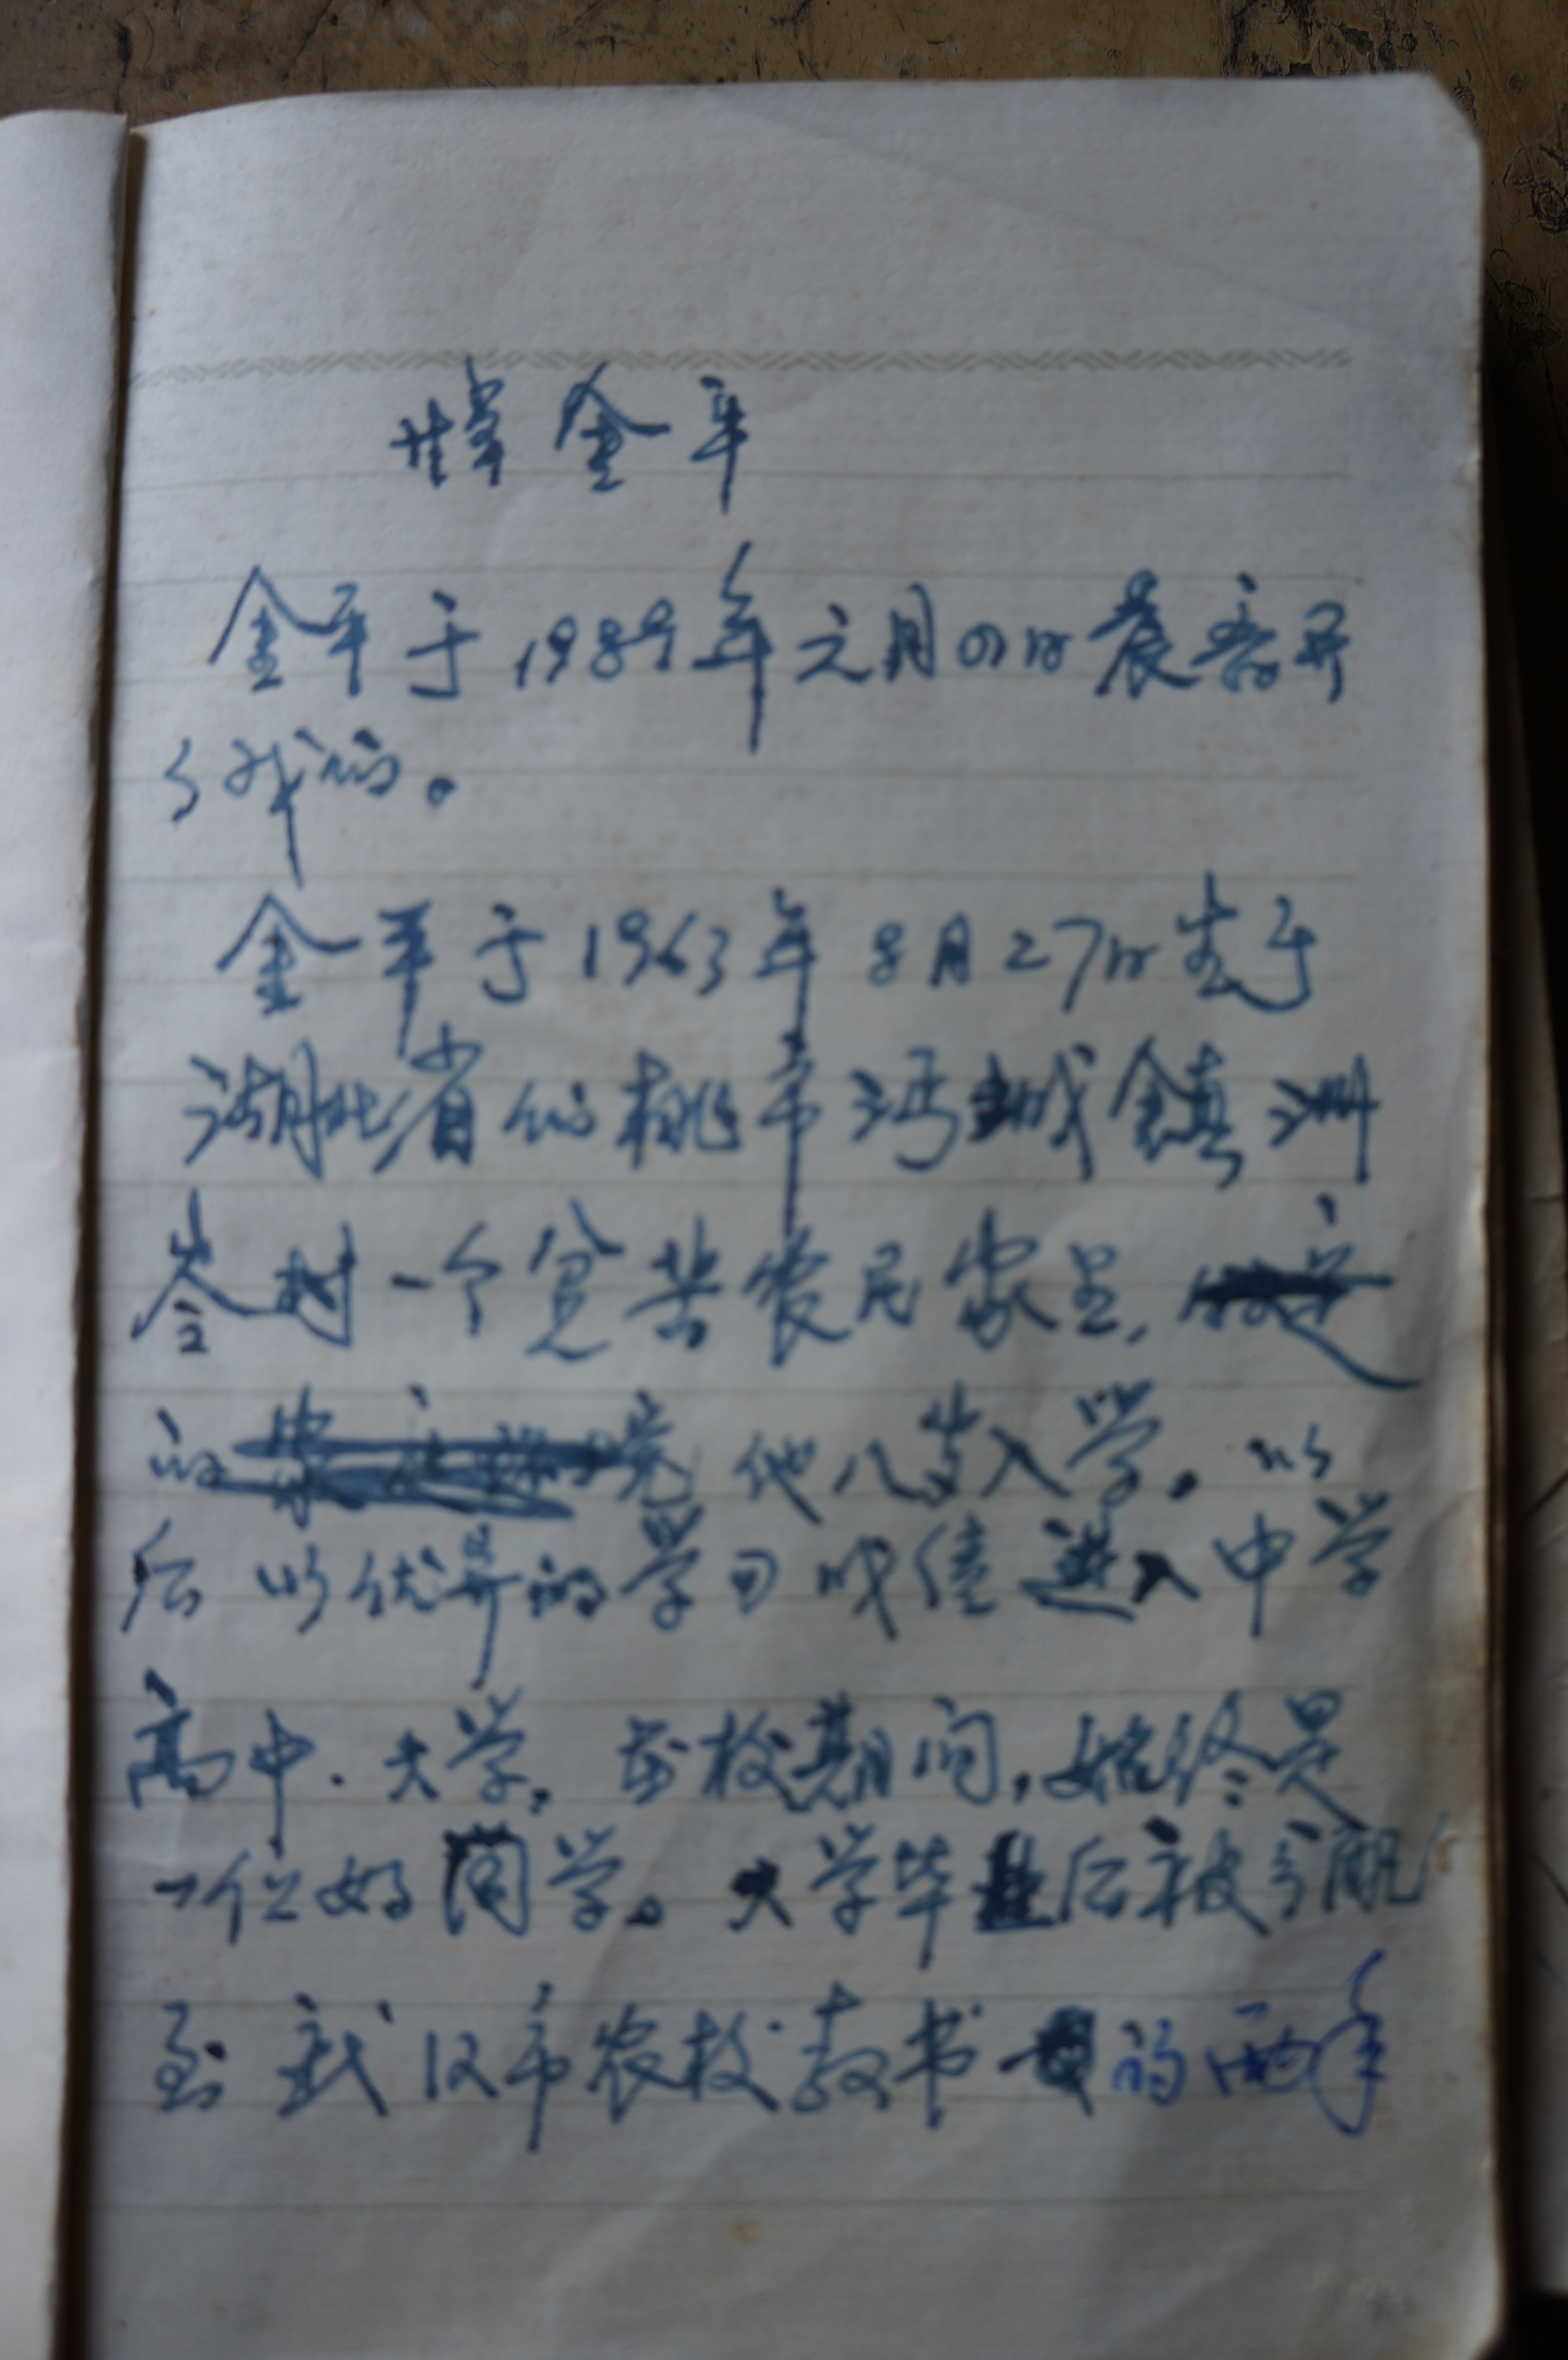 悼金平
金平于1989年元月 日晨离开
了我们。
金平于1963年8月27日生于
湖北省仙桃市沔城镇洲
岺村一个贫苦农民家里,
的 他八岁入学。以
后以优异的学习成绩进入中学
高中.大学。在校期间,始终是
一位好同学。大学毕业后被分配
至武汉市农校教书 的两年